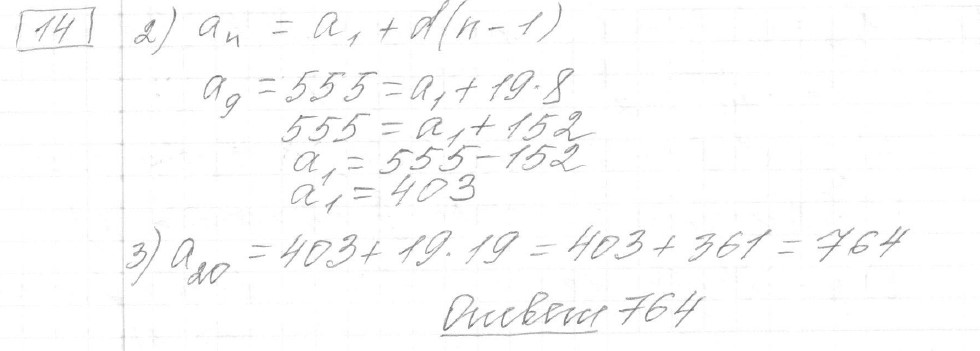 14 2) aₙ = a₁ + d(n - 1)
a₉ = 555 = a₁ + 19 · 8
555 = a₁ + 152
a₁ = 555 - 152
a₁ = 403
3) a₂₀ = 403 + 19 · 19 = 403 + 361 = 764
Ответ 764